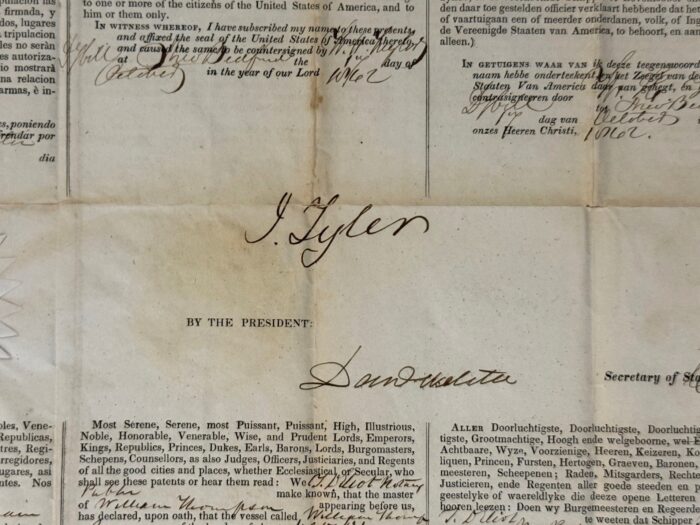 firmada, y
to one or more of the citizens of the United States of America, and to
him or them only.
In witness whereof, I have subscribed my name to these presents,
and affixed the seal of the United States of America thereto,
and caused the same to be countersigned by
at New Bedford the day of
October in the year of our Lord 1842
daar toe gestelden officier verklaart hebbende dat he
of vaartuigaan een of meerder onderdanen, volk, of In
de Vereenigde Staaten van America, to behoort, en aan
alleen.)
In getuigens waar van ik deeze teegenswoord
naam hebbe onderteekent en het Zeegel van de
Staaten Van America daar aan gehegt, en
contrasigneeren door
to New Be
dag van October
onzes Heeren Christi, 1842.
tripulacion
les no serán
autoriza-
mostrará
na relacion
armas, è in-
es, poniendo
rendar por
dia
J. Tyler
BY THE PRESIDENT:
Dan Webster
Secretary of Sta
Most Serene, Serene, most Puissant, Puissant, High, Illustrious,
Noble, Honorable, Venerable, Wise, and Prudent Lords, Emperors,
Kings, Republics, Princes, Dukes, Earls, Barons, Lords, Burgomasters,
Schepens, Counsellors, as also Judges, Officers, Justiciaries, and Regents
of all the good cities and places, whether Ecclesiastical or Secular, who
shall see these patents or hear them read: We
Public make known, that the master
of William Thompson appearing before us,
has declared, upon oath, that the vessel called William Thomp
Aller Doorluchtigste, Doorluchtigste, Doorluchti
tigste, Grootmachtige, Hoogh ende welgeboorne, wel
Achtbaare, Wyze, Voorzienige, Heeren, Keizeren, Ko
liquen, Princen, Fursten, Hertogen, Graeven, Baronen,
meesteren, Schepenen; Rades, Mitsgaders, Rechters
Justicien, ende Regenten aller goede steeden en p
geestelyke of waereldlyke die deeze opene Letteren
hooren leezen: Doen wy Burgermeesteren en Regeer
te weeten dat Schipp
oles, Vene-
Republicas,
tres, Regi-
rregidores,
ugares, asi
entes. Nos